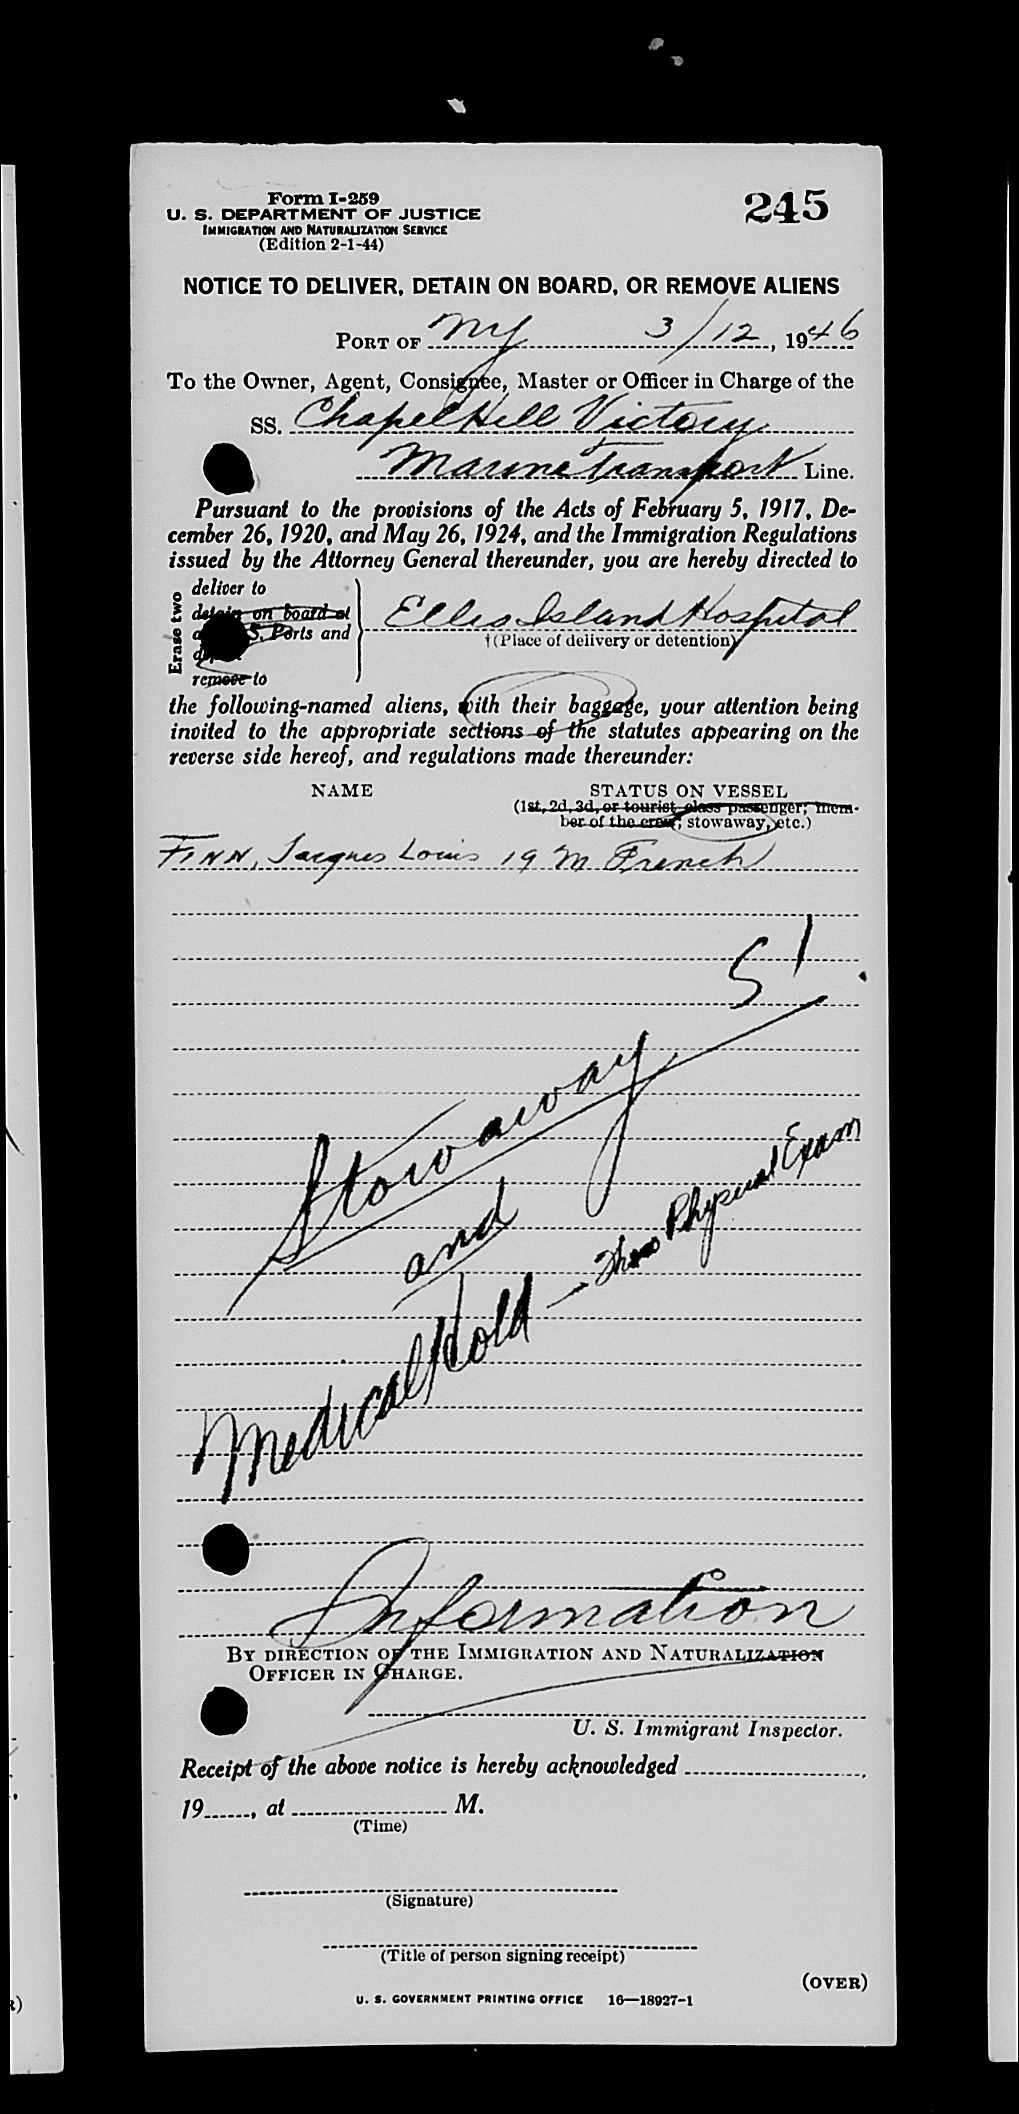 Form I-259
U. S. DEPARTMENT OF JUSTICE
IMMIGRATION AND NATURALIZATION SERVICE
(Edition 2-1-44)
245
NOTICE TO DELIVER, DETAIN ON BOARD, OR REMOVE ALIENS
PORT OF NY 3/12, 1946
To the Owner, Agent, Consignee, Master or Officer in Charge of the
SS. Chapel Hill Victory
Marine Transport Line.
Pursuant to the provisions of the Acts of February 5, 1917, De-
cember 26, 1920, and May 26, 1924, and the Immigration Regulations
issued by the Attorney General thereunder, you are hereby directed to
Erase two
deliver to
detain on board at
S. Ports and
remove to
Ellis Island Hospital
†(Place of delivery or detention)
the following-named aliens, with their baggage, your attention being
invited to the appropriate sections of the statutes appearing on the
reverse side hereof, and regulations made thereunder:
NAME STATUS ON VESSEL
(1st, 2d, 3d, or tourist class passenger; mem-
ber of the crew; stowaway, etc.)
FINN, Jacques Louis 19 M French
S 1
Stowaway
and
Medical Hold - Thoro Physical Exam
Information
BY DIRECTION OF THE IMMIGRATION AND NATURALIZATION
OFFICER IN CHARGE.
U. S. Immigrant Inspector.
Receipt of the above notice is hereby acknowledged
19, at M.
(Time)
(Signature)
(Title of person signing receipt)
(OVER)
U. S. GOVERNMENT PRINTING OFFICE 16—18927-1